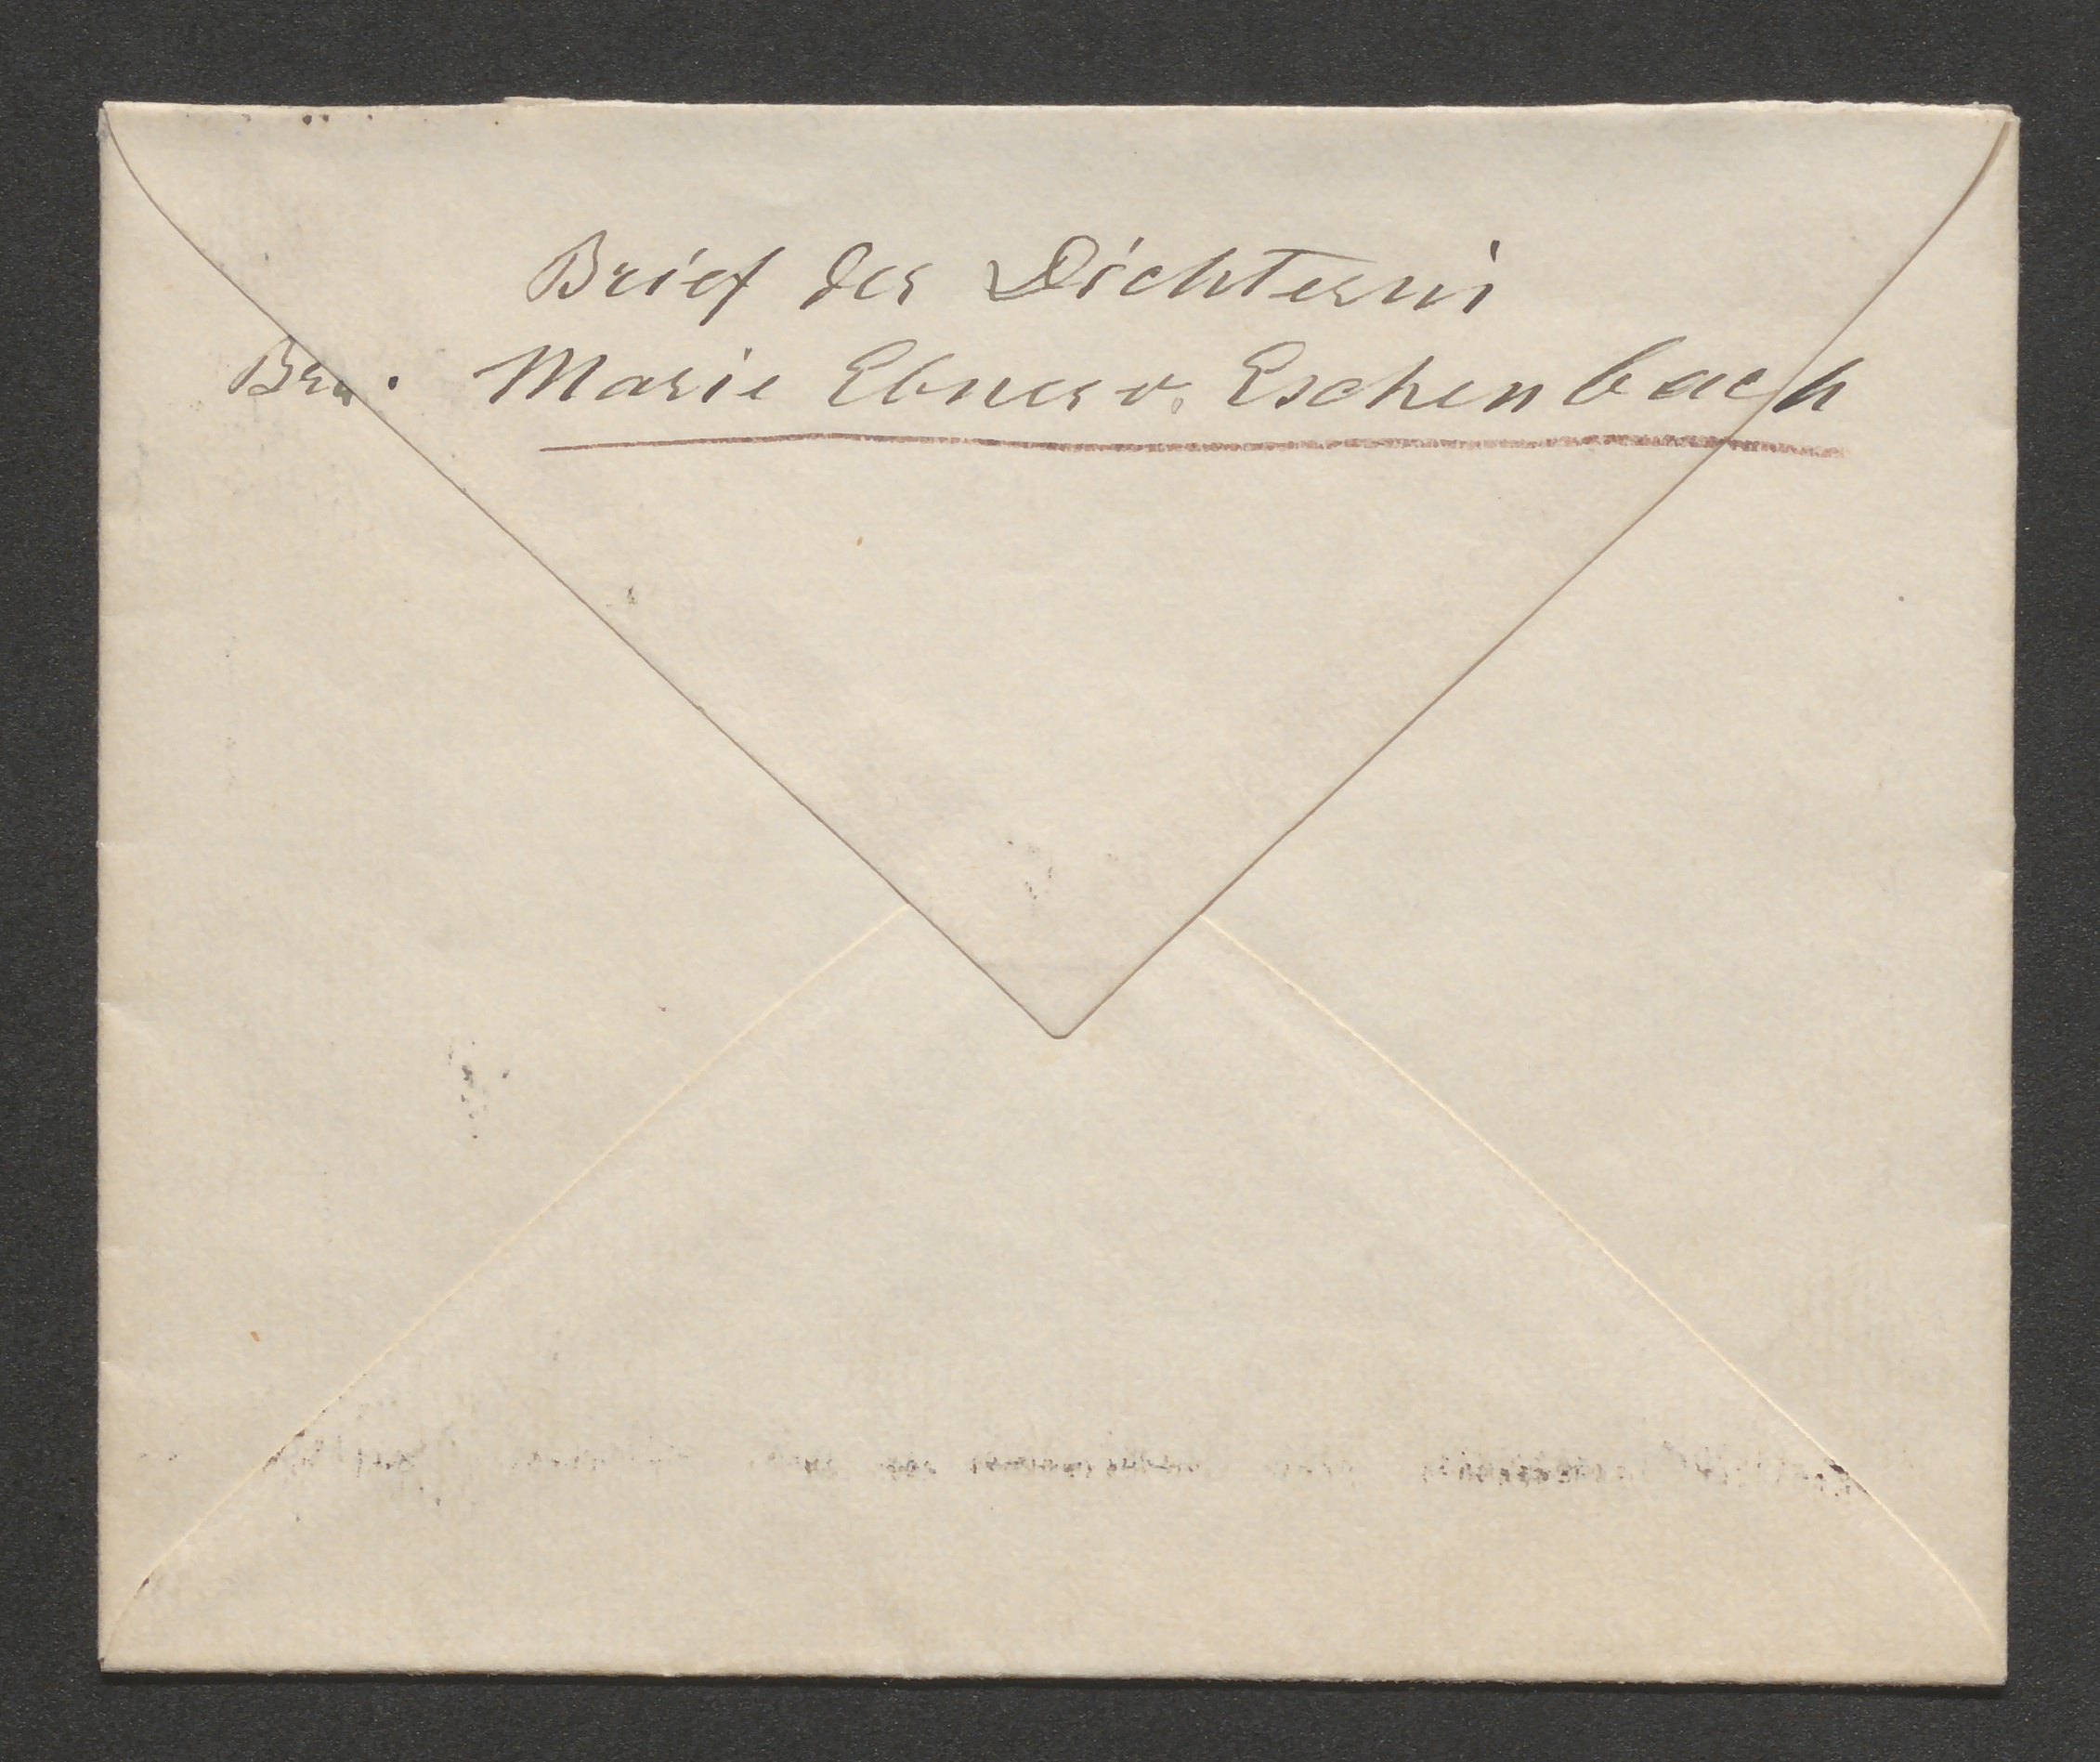 Brief der Dichterin
Brn. Marie Ebner v. Eschenbach